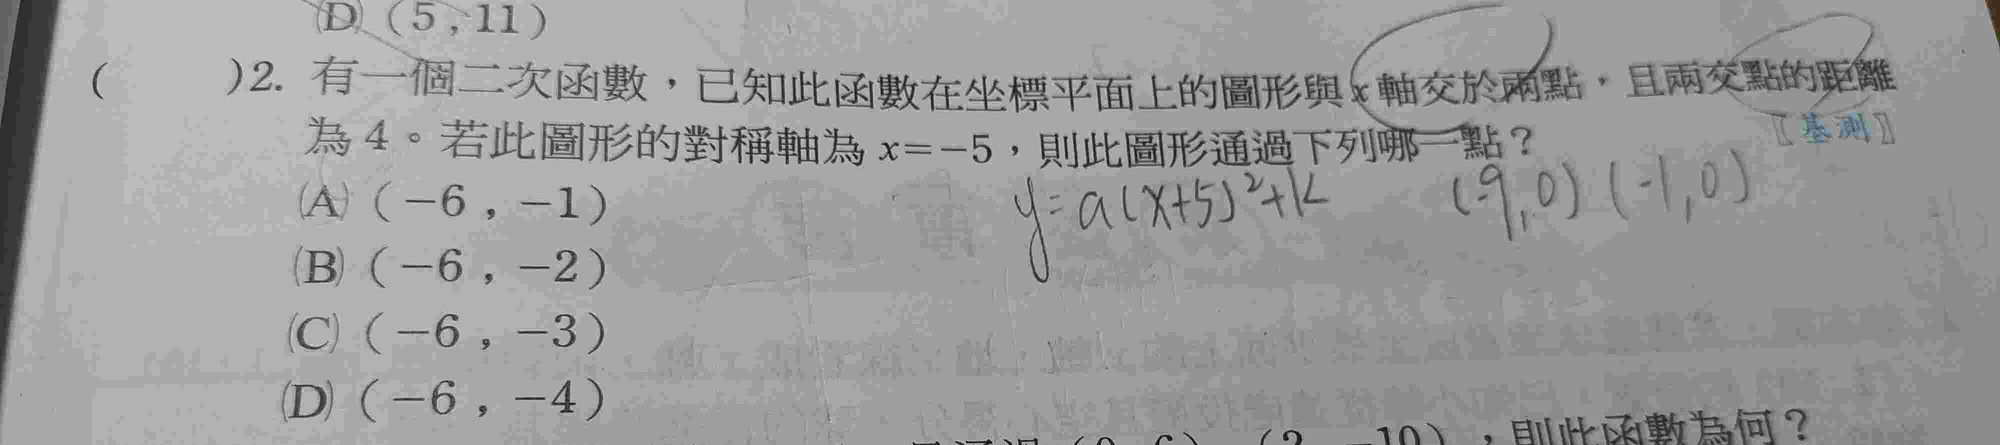 (D)(5,11)
(　　)2. 有一個二次函數，已知此函數在坐標平面上的圖形與x軸交於兩點，且兩交點的距離
為4。若此圖形的對稱軸為x=-5，則此圖形通過下列哪一點？
〖基測〗
y=a(x+5)²+k　(-9,0)(-1,0)
(A)(-6,-1)
(B)(-6,-2)
(C)(-6,-3)
(D)(-6,-4)
，則此函數為何？